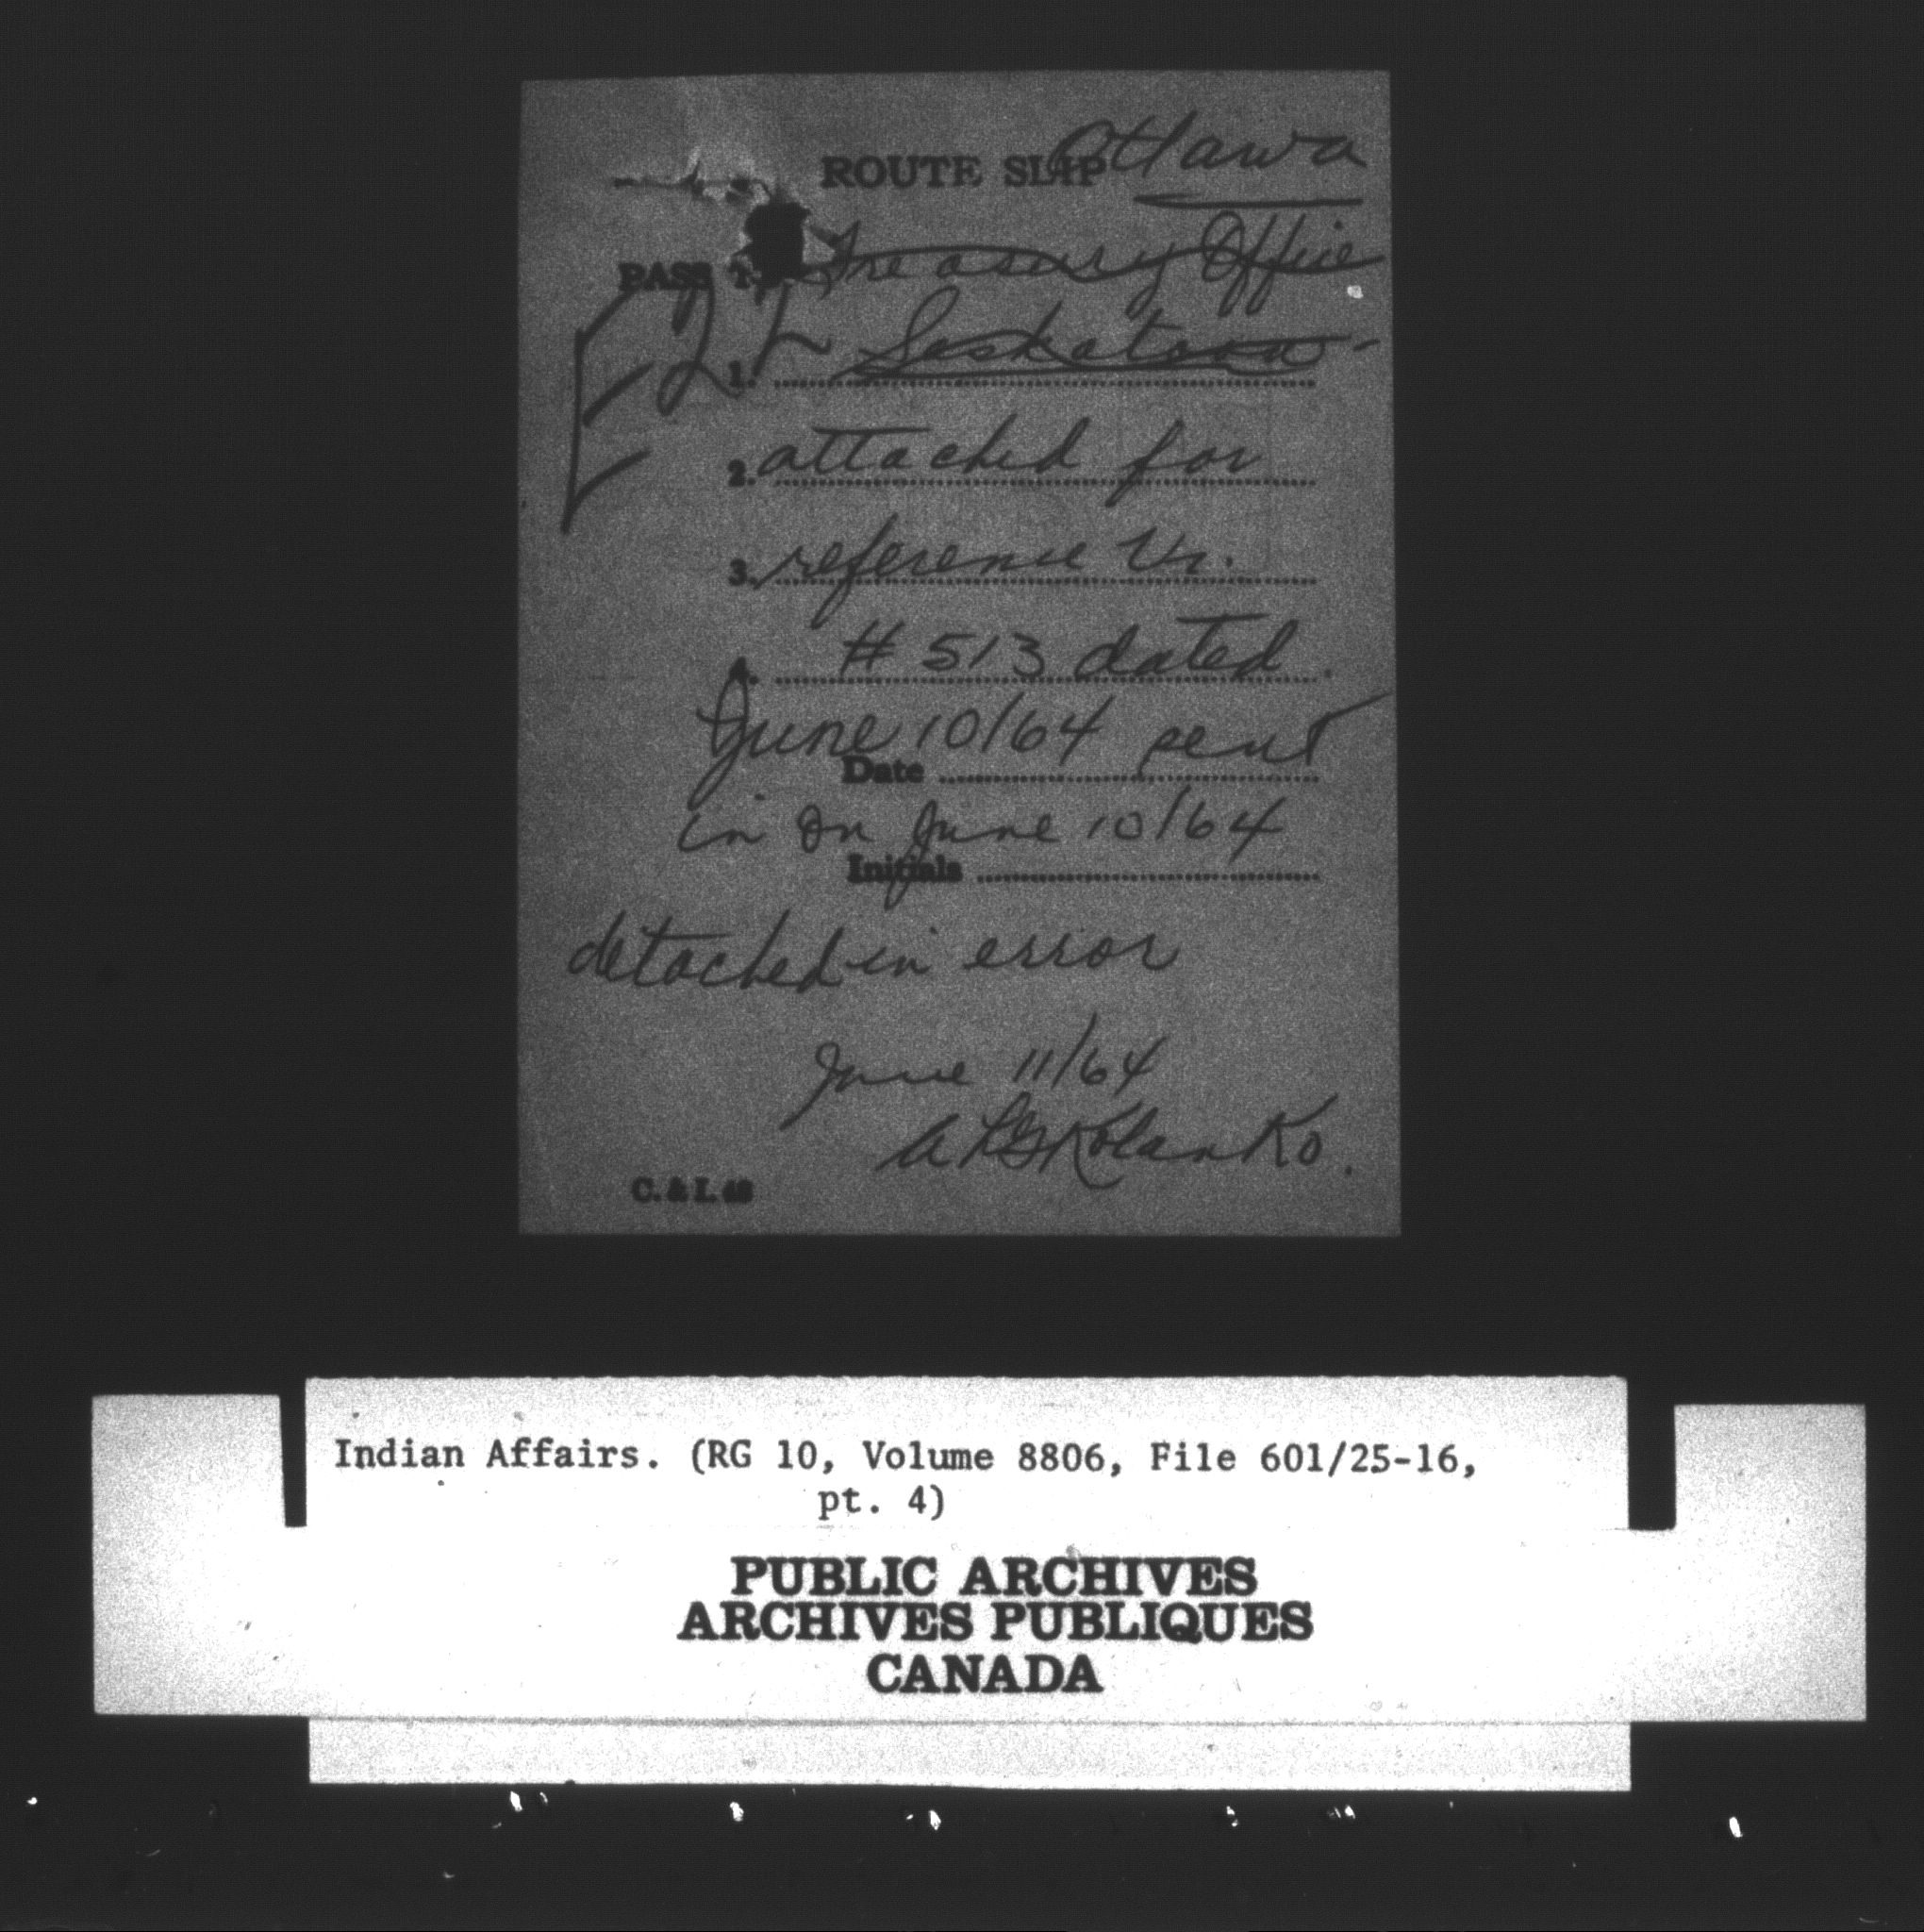 Ottawa
ROUTE SLIP
Treasury Office
PASS
1. Saskatoon -
2. attached for
3. reference Vr.
4. # 513 dated
June 10/64 sent
Date
in on June 10/64
Initials
detached in error
June 11/64
Kolanko.
C. & I. 48
Indian Affairs. (RG 10, Volume 8806, File 601/25-16,
pt. 4)
PUBLIC ARCHIVES
ARCHIVES PUBLIQUES
CANADA